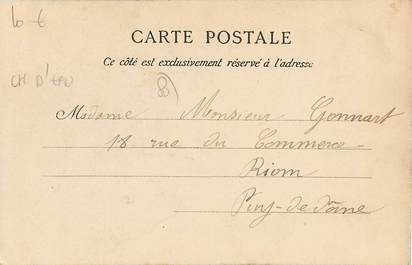 10 €
CARTE POSTALE
Ce côté est exclusivement réservé à l'adresse
CH D'EAU
Madame Monsieur Gonnart
18 rue du Commerce
Riom
Puy-de-Dôme